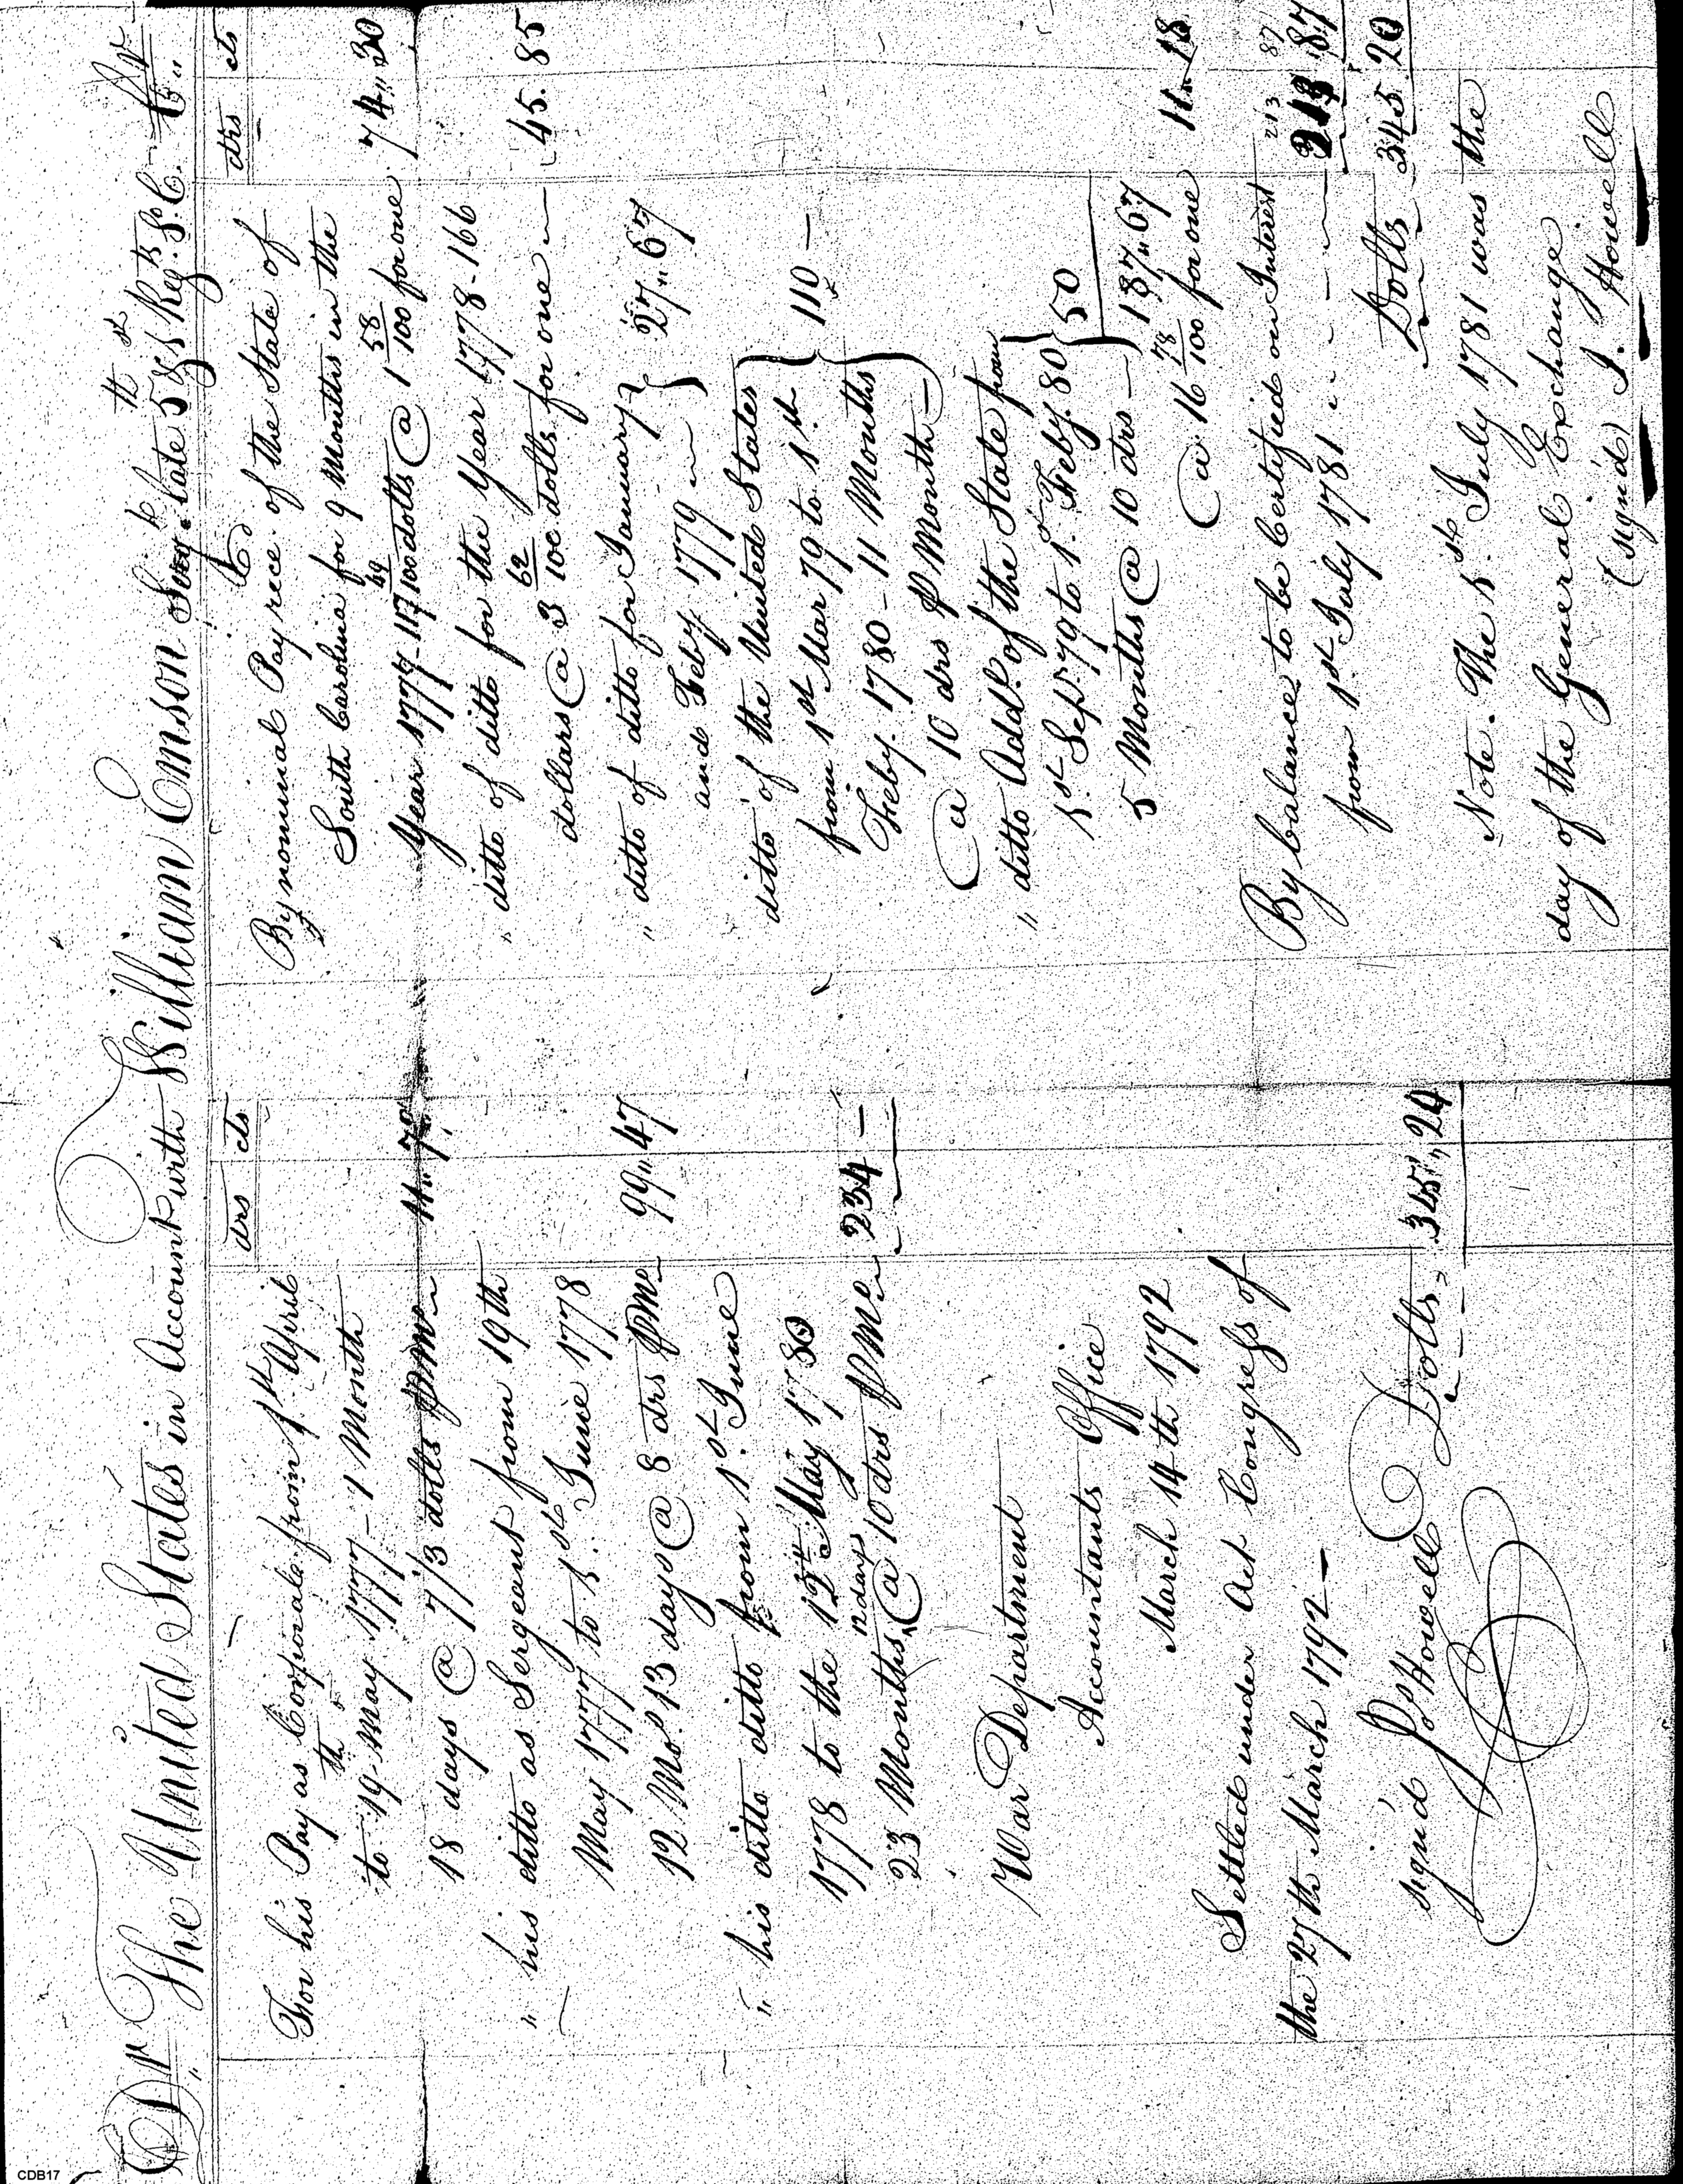 Dr The United States in Account with William Emson Serjt late 5th Regt So. C. Cr
drs cts
For his Pay as Corporal from 1st April
to 19th May 1777 - 1 Month
18 days @ 7/3 dolls P Mo 11,,7
" his ditto as Sergeant from 19th
May 1777 to 1st June 1778
12 Mo. 13 days @ 8 drs P Mo 99,,47
" his ditto ditto from 1st June
1778 to the 12th May 1780
23 Months 12 days @ 10 drs P Mo 234 —
War Department
Accountants Office
March 14th 1792
Settled under Act Congress of
the 27th March 1792 —
sign'd Jos Howell Dolls 345,,24
drs cts
By nominal Pay rece. of the State of
South Carolina for 9 Months in the
Year 1777 - 117 49/100 dolls @ 1 58/100 for one 74,,30
" ditto of ditto for the Year 1778 - 166
dollars @ 3 62/100 dolls for one 45.85
" ditto of ditto for January } 27,,67
and Feby 1779
ditto of the United States
from 1st Mar 79 to 1st } 110 —
Feby. 1780 - 11 Months
@ 10 drs P Month
" ditto Addl. of the State from
1st Sep. 79 to 1st Feby. 80 } 50
5 Months @ 10 drs — 187,,67
@ 16 78/100 for one 11,,18
By balance to be Certified on Interest 213 87
from 1st July 1781 213 87
Dolls 345 20
Note. The 1st July 1781 was the
day of the General Exchange
(sign'd) J. Howell
CDB17